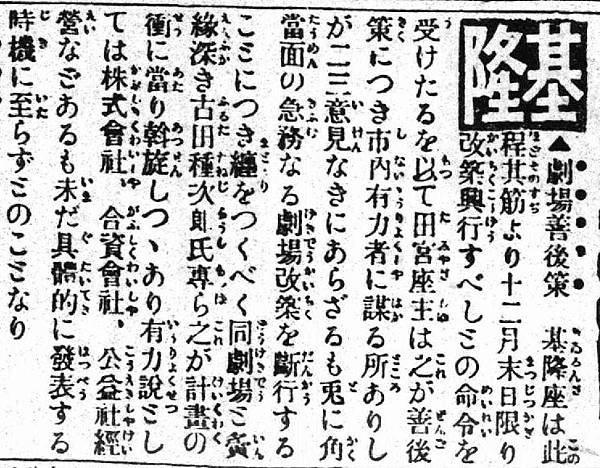 基隆
▲劇場善後策　基隆座は此
程其筋より十二月末日限り
改築興行すべしとの命令を
受けたるを以て田宮座主は之が善後
策につき市内有力者に謀る所ありし
が二三意見なきにあらざるも兎に角
當面の急務なる劇場改築を斷行する
ことにつき纏をつくべく同劇場と黄
緣深き古田種次郎氏專ら之が計畫の
衝に當り斡旋しつゝあり有力說とし
ては株式會社、合資會社、公益社經
營などあるも未だ具體的に發表する
時機に至らずとのことなり